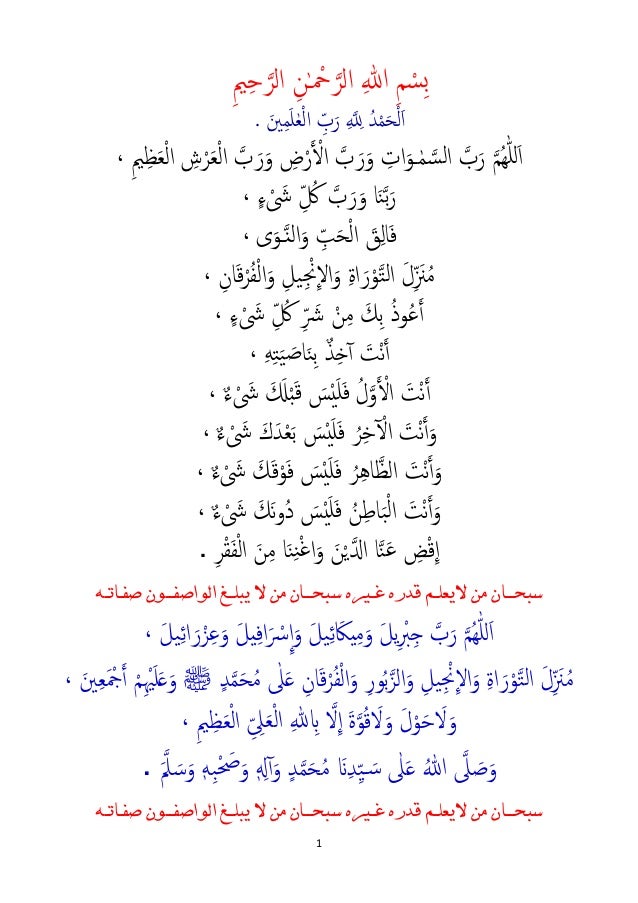 بِسْمِ اللهِ الرَّحْمٰنِ الرَّحِيمِ
اَلْحَمْدُ لِلَّهِ رَبِّ الْعٰلَمِينَ .
اَللّٰهُمَّ رَبَّ السَّمٰوَاتِ وَرَبَّ الْأَرْضِ وَرَبَّ الْعَرْشِ الْعَظِيمِ ،
رَبَّنَا وَرَبَّ كُلِّ شَيْءٍ ،
فَالِقَ الْحَبِّ وَالنَّوَى ،
مُنَزِّلَ التَّوْرَاةِ وَالإِنْجِيلِ وَالْفُرْقَانِ ،
أَعُوذُ بِكَ مِنْ شَرِّ كُلِّ شَيْءٍ ،
أَنْتَ آخِذٌ بِنَاصِيَتِهِ ،
أَنْتَ الْأَوَّلُ فَلَيْسَ قَبْلَكَ شَيْءٌ ،
وَأَنْتَ الْآخِرُ فَلَيْسَ بَعْدَكَ شَيْءٌ ،
وَأَنْتَ الظَّاهِرُ فَلَيْسَ فَوْقَكَ شَيْءٌ ،
وَأَنْتَ الْبَاطِنُ فَلَيْسَ دُونَكَ شَيْءٌ ،
إِقْضِ عَنَّا الدَّيْنَ وَاغْنِنَا مِنَ الْفَقْرِ .
سبحـان من لايعلـم قدره غـيره سبحـان من لا يبلـغ الواصفـون صفـاتـه
اَللّٰهُمَّ رَبَّ جِبْرِيلَ وَمِيكَائِيلَ وَإِسْرَافِيلَ وَعِزْرَائِيلَ ،
مُنَزِّلَ التَّوْرَاةِ وَالإِنْجِيلِ وَالزَّبُورِ وَالْفُرْقَانِ عَلٰى مُحَمَّدٍ ﷺ وَعَلَيْهِمْ أَجْمَعِينَ ،
وَلَاحَوْلَ وَلَاقُوَّةَ إِلَّا بِاللهِ الْعَلِيِّ الْعَظِيمِ ،
وَصَلَّى اللهُ عَلٰى سَيِّدِنَا مُحَمَّدٍ وَآلِهِ وَصَحْبِهِ وَسَلَّمَ .
سبحـان من لايعلـم قدره غـيره سبحـان من لا يبلـغ الواصفـون صفـاتـه
1